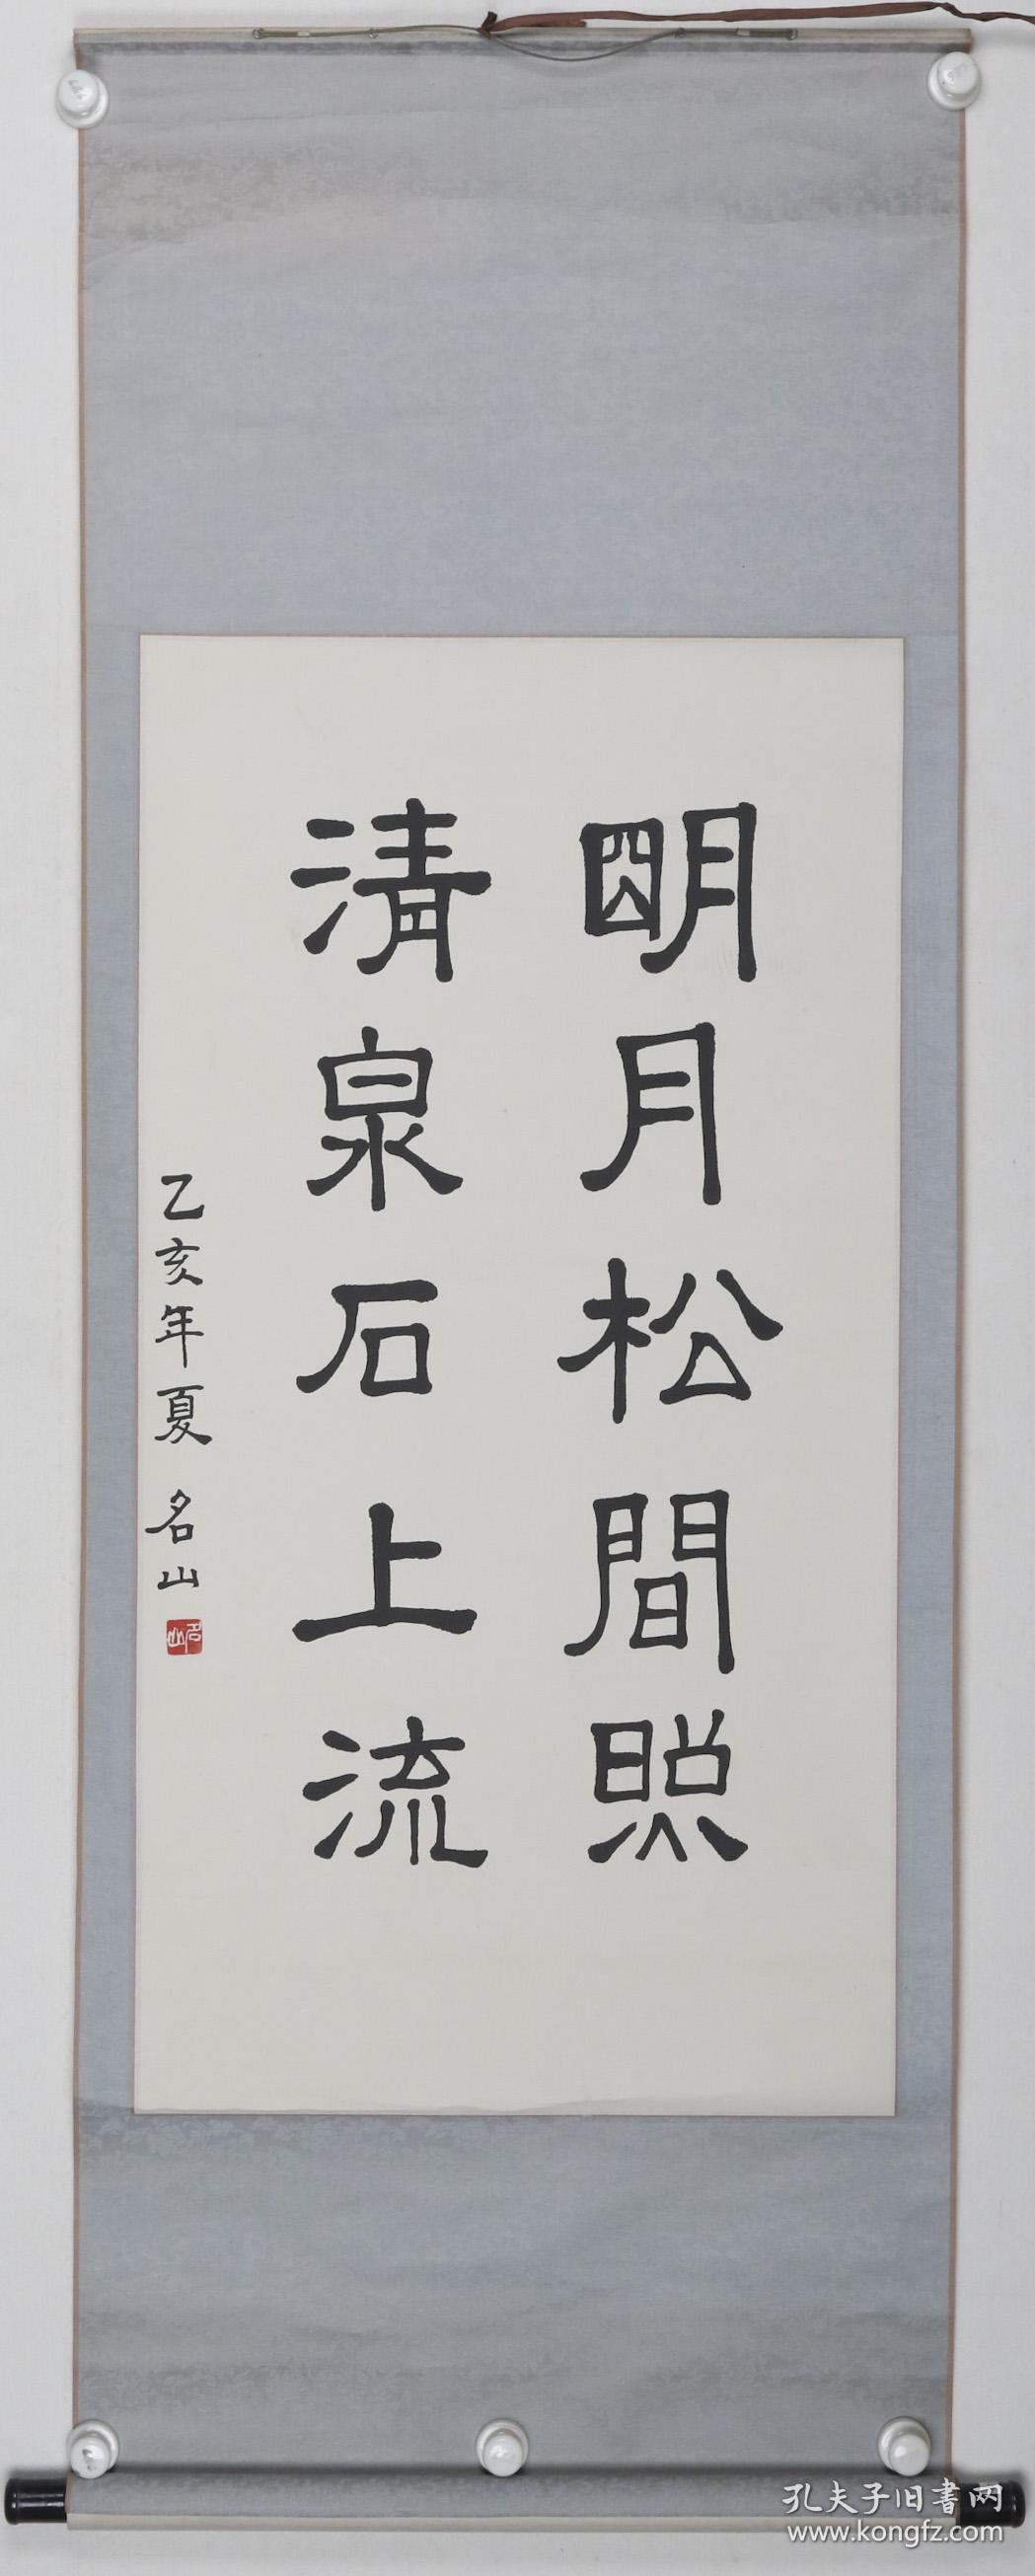 明月松間照
清泉石上流
乙亥年夏 名山
名山
孔夫子旧書网
www.kongfz.com